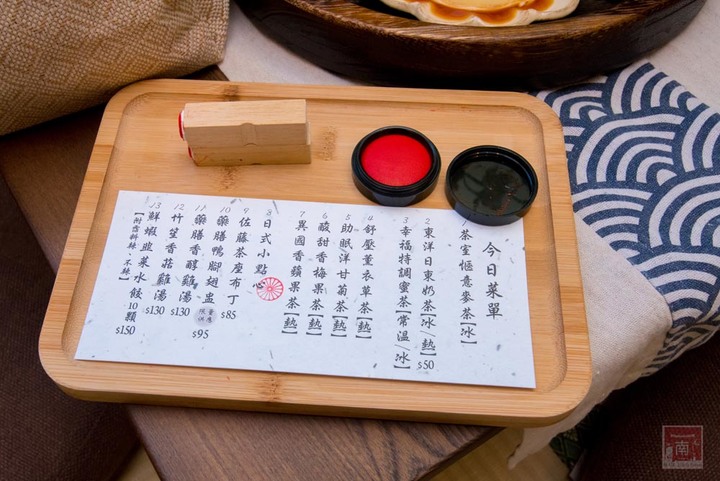 今日菜單
茶室愜意麥茶【冰】
2 東洋日東奶茶【冰/熱】$50
3 幸福特調蜜茶【常溫/冰】
4 舒壓薰衣草茶【熱】
5 助眠洋甘菊茶【熱】
6 酸甜香梅果茶【熱】
7 異國香蘋果茶【熱】
8 日式小點心
9 佐藤茶座布丁
10 藥膳鴨腳翅盅 $85
11 藥膳香醇雞湯 $95
限量供應
12 竹笙香菇雞湯 $130
13 鮮蝦韭菜水餃10顆 $130
【附醬料辣・不辣】 $150
南